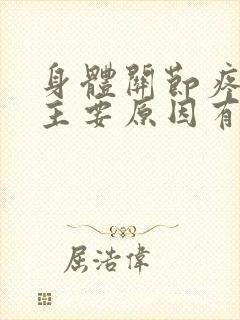 身體關節疼
主要原因有
屈浩偉